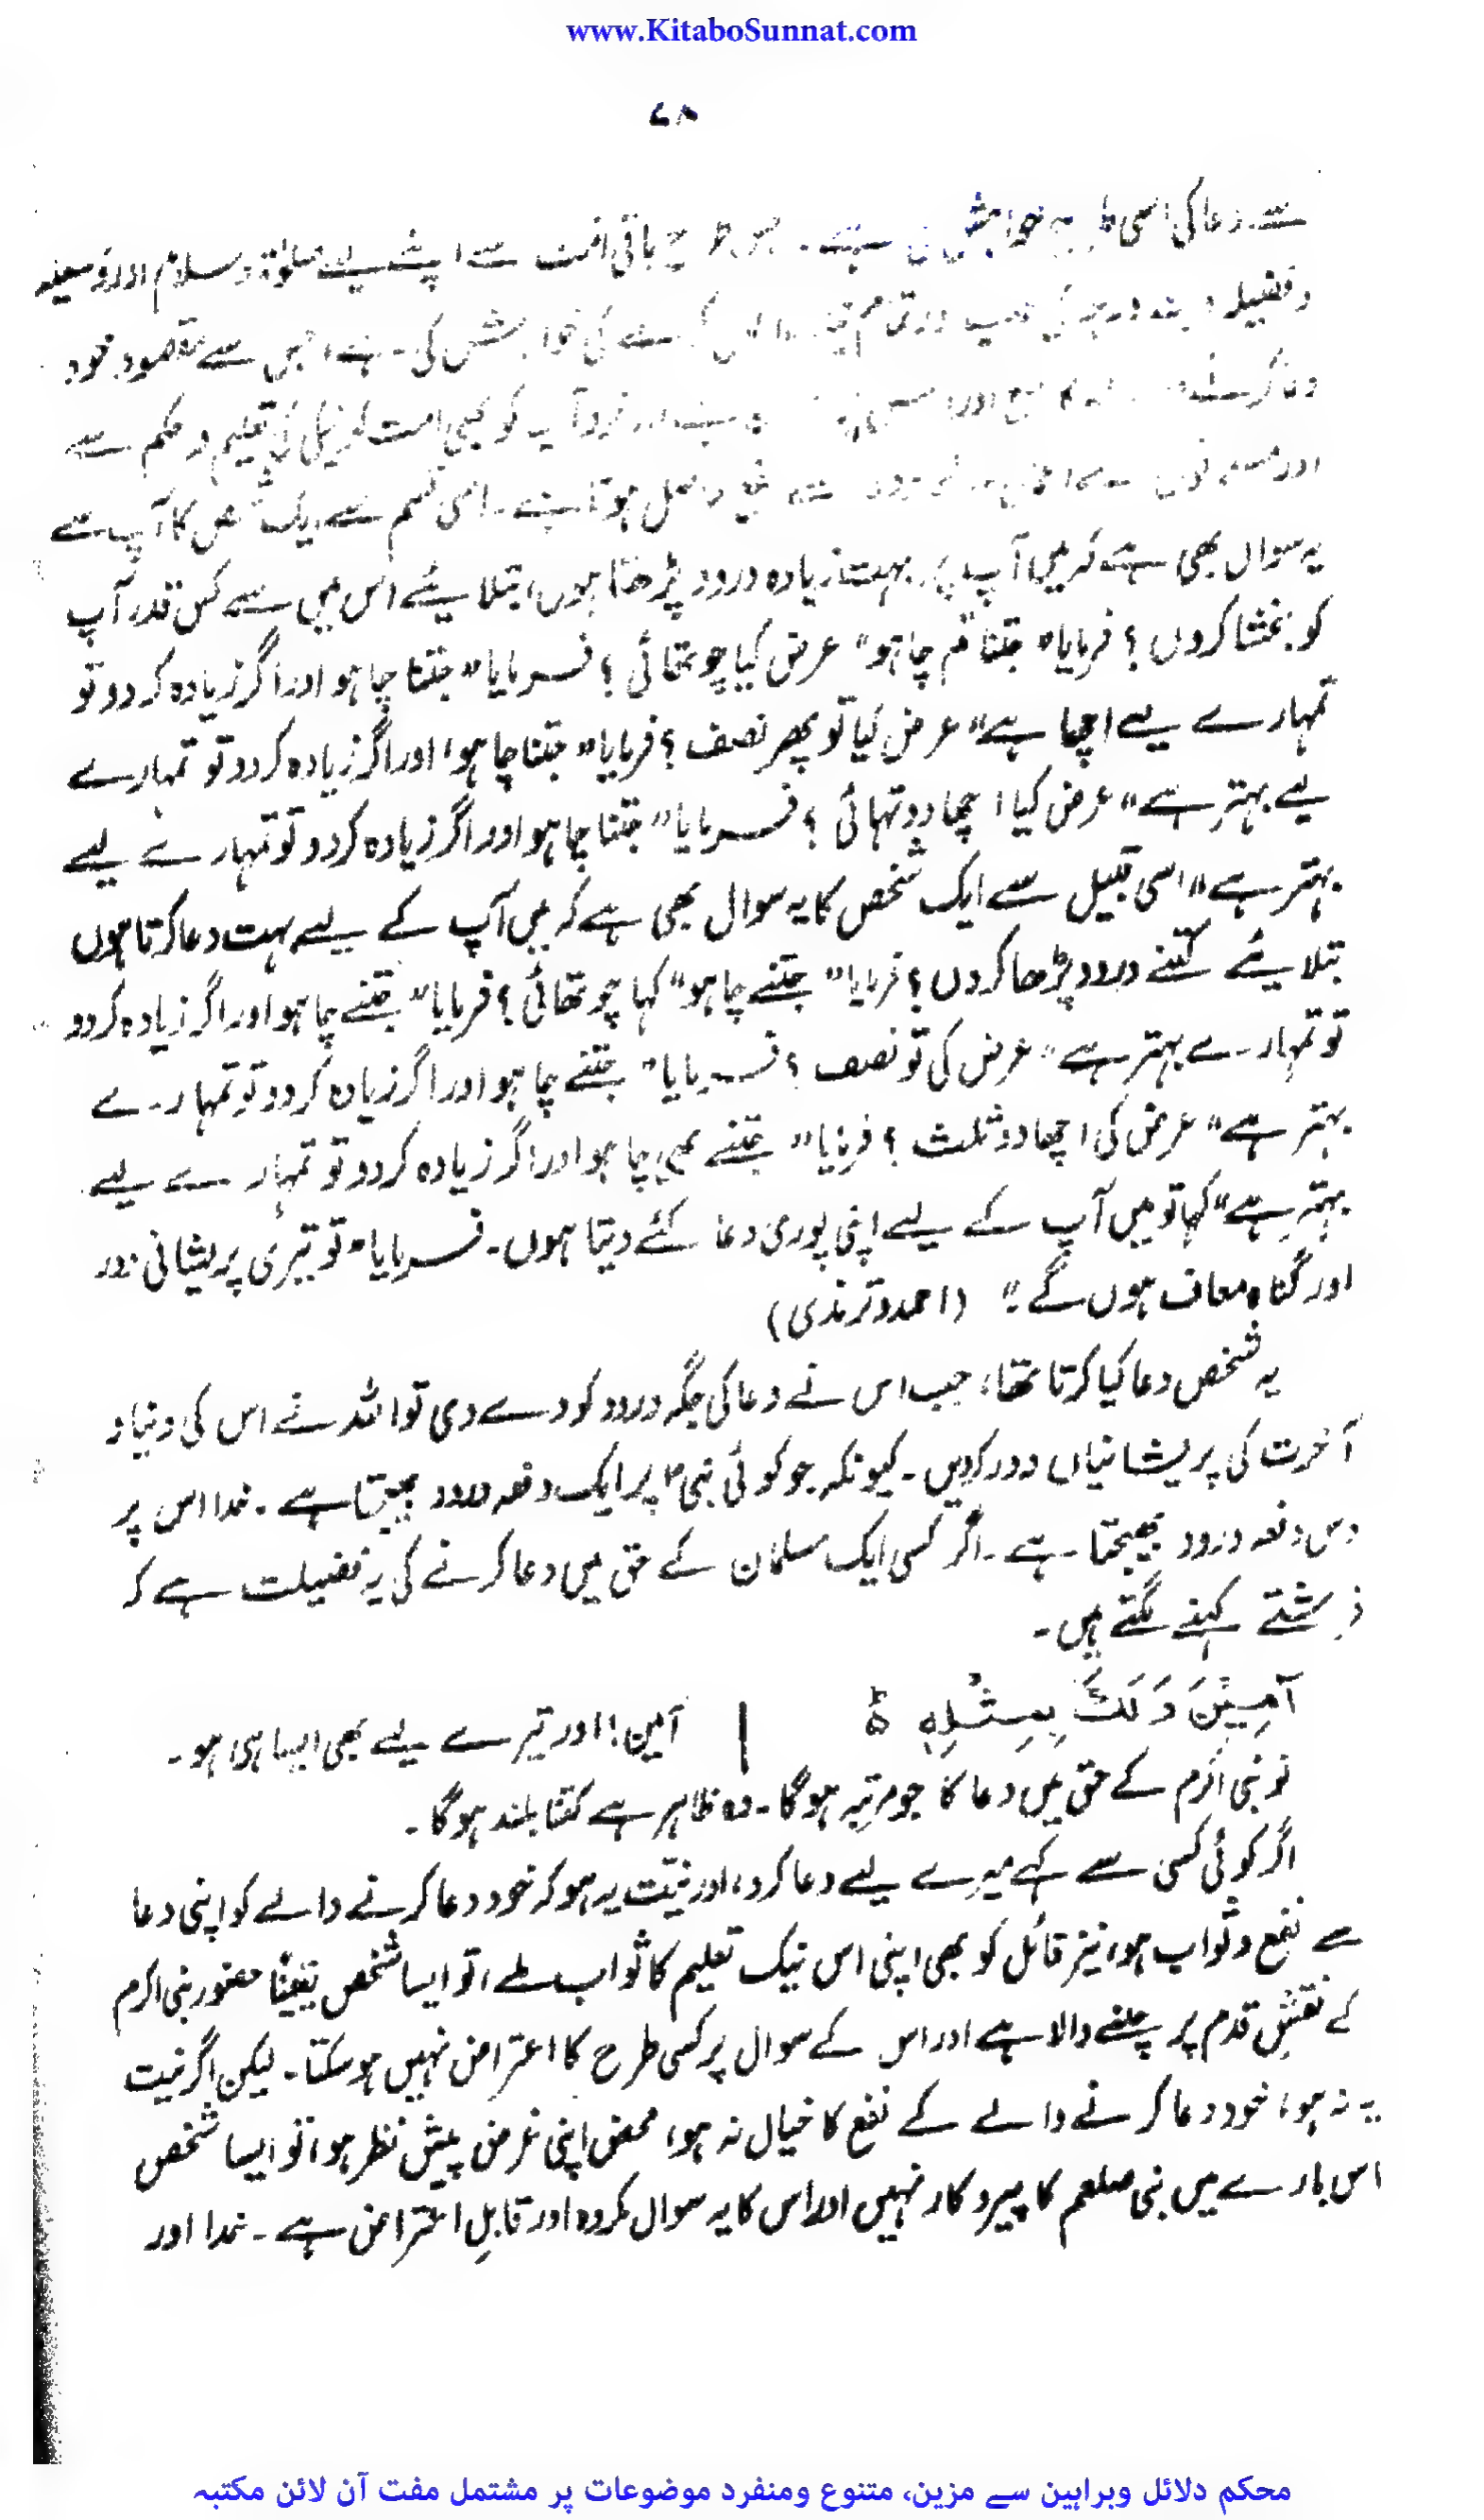 www.KitaboSunnat.com
۷۸
سے دعا کی اسی خواہش ہے۔ باقی امت سے اپنے لیے صلوٰۃ و سلام اور وسیلہ
و فضیلہ کی خواہش کی ہے، جس سے مقصود خود
اور کو بھی امت کو نیکی کی تعلیم و حکم سے
اور سے نفع حاصل ہوتا ہے۔ اسی قسم سے ایک شخص کا آپ سے
یہ سوال بھی ہے کہ میں آپ پر بہت زیادہ درود پڑھتا ہوں، بتلائیے اس میں سے کس قدر آپ
کو بخشا کروں؟ فرمایا "جتنا تم چاہو" عرض کیا چوتھائی؟ فرمایا "جتنا چاہو اور اگر زیادہ کر دو تو
تمہارے لیے اچھا ہے" عرض کیا تو پھر نصف؟ فرمایا "جتنا چاہو، اور اگر زیادہ کردو تو تمہارے
لیے بہتر ہے" عرض کیا اچھا دو تہائی؟ فرمایا "جتنا چاہو اور اگر زیادہ کردو تو تمہارے لیے
بہتر ہے" اسی قبیل سے ایک شخص کا یہ سوال بھی ہے کہ میں آپ کے لیے بہت دعا کرتا ہوں
بتلائیے کتنے درود پڑھا کروں؟ فرمایا "جتنے چاہو" کہا چوتھائی؟ فرمایا "جتنے چاہو اور اگر زیادہ کردو
تو تمہارے بہتر ہے" عرض کی تو نصف؟ فرمایا "جتنے چاہو اور اگر زیادہ کردو تو تمہارے
بہتر ہے" عرض کی اچھا دو ثلث؟ فرمایا "جتنے بھی چاہو اور اگر زیادہ کردو تو تمہارے لیے
بہتر ہے" کہا تو میں آپ کے لیے اپنی پوری دعا کئے دیتا ہوں۔ فرمایا "تو تیری پریشانی دور
اور گناہ معاف ہوں گے" (احمد و ترمذی)
یہ شخص دعا کیا کرتا تھا، جب اس نے دعا کی جگہ درود کو دے دی تو اللہ نے اس کی دنیا و
آخرت کی پریشانیاں دور کردیں۔ کیونکہ جو کوئی نبیؐ پر ایک دفعہ درود بھیجتا ہے۔ خدا اس پر
دس دفعہ درود بھیجتا ہے۔ اگر کسی ایک مسلمان کے حق میں دعا کرنے کی یہ فضیلت ہے کہ
فرشتے کہنے لگتے ہیں۔
آمِیْنَ وَلَکَ بِمِثْلِہٖ ط | آمین! اور تیرے لیے بھی ایسا ہی ہو۔
تو نبی اکرم کے حق میں دعا کا جو مرتبہ ہوگا۔ وہ ظاہر ہے کتنا بلند ہوگا۔
اگر کوئی کسی سے کہے میرے لیے دعا کرو، اور نیت یہ ہو کہ خود دعا کرنے والے کو اپنی دعا
سے نفع و ثواب ہو، نیز قائل کو بھی اپنی اس نیک تعلیم کا ثواب ملے، تو ایسا شخص یقیناً حضور نبی اکرم
کے نقشِ قدم پر چلنے والا ہے اور اس کے سوال پر کسی طرح کا اعتراض نہیں ہو سکتا۔ لیکن اگر نیت
یہ نہ ہو، خود دعا کرنے والے کے نفع کا خیال نہ ہو، محض اپنی غرض پیش نظر ہو، تو ایسا شخص
اس بارے میں نبی صلعم کا پیروکار نہیں اور اس کا یہ سوال مکروہ اور قابلِ اعتراض ہے۔ خدا اور
محکم دلائل وبراہین سے مزین، متنوع ومنفرد موضوعات پر مشتمل مفت آن لائن مکتبہ